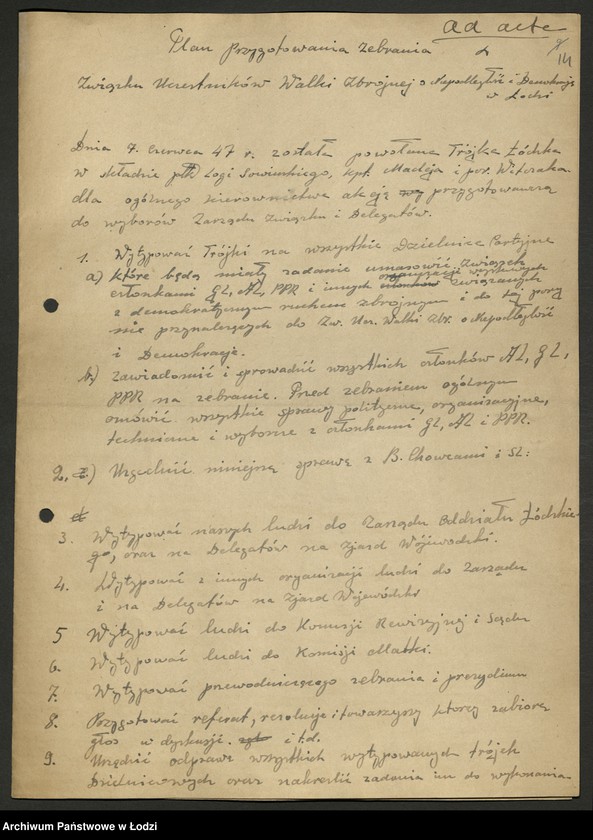 ad acta
14
Plan Przygotowania zebrania
Związku Uczestników Walki Zbrojnej o Niepodległść i Demokrację
w Łodzi
Dnia 7. Czerwca 47 r. została powołana Trójka Łódzka
w składzie płk Logi Sowińskiego, kpt. Madeja i por. Witczaka
dla ogólnego kierownictwa akcją przygotowawczą
do wyborów Zarządu Związku i Delegatów.
1. Wytypować Trójki na wszystkie Dzielnice Partyjne
a) które będą miały zadanie umasowić Związek
członkami GL, AL, PPR i innych organizacji związanych
z demokratycznym ruchem zbrojnym i do tej pory
nie przynależących do Zw. Ucz. Walki Zbr. o Niepodległść
i Demokrację.
b) zawiadomić i sprowadzić wszystkich członków AL, GL,
PPR na zebranie. Przed zebraniem ogólnym
omówić wszystkie sprawy polityczne, organizacyjne,
techniczne i wyborcze z członkami GL, AL i PPR.
2. Uzgodnić niniejszą sprawę z B. Chowcami i SL.
3. Wytypować naszych ludzi do Zarządu Oddziału Łódzkie-
go, oraz na Delegatów na Zjazd Wojewódzki.
4. Wytypować z innych organizacji ludzi do Zarządu
i na Delegatów na Zjazd Wojewódzki
5 Wytypować ludzi do Komisji Rewizyjnej i Sądu
6. Wytypować ludzi do Komisji Matki.
7. Wytypować przewodniczącego zebrania i prezydium
8. Przygotować referat, rezolucje i towarzyszy którzy zabiorą
głos w dyskusji. i t.d.
9. Urządzić odprawę wszystkich wytypowanych trójek
Dzielnicowych oraz nakreślić zadania im do wykonania
Archiwum Państwowe w Łodzi